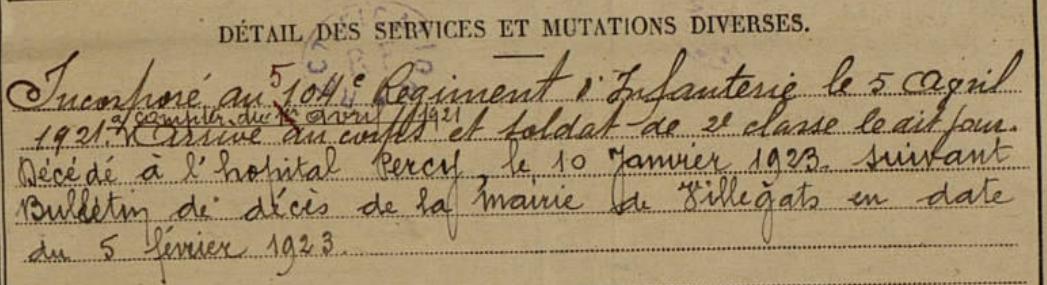 DÉTAIL DES SERVICES ET MUTATIONS DIVERSES.
Incorporé au 504e Régiment d'Infanterie le 5 Avril
à compter du 1er avril 1921
1921. Arrivé au corps et soldat de 2e classe le dit jour.
Décédé à l'hopital Percy, le 10 Janvier 1923. suivant
Bulletin de décès de la mairie de Villegats en date
du 5 février 1923.